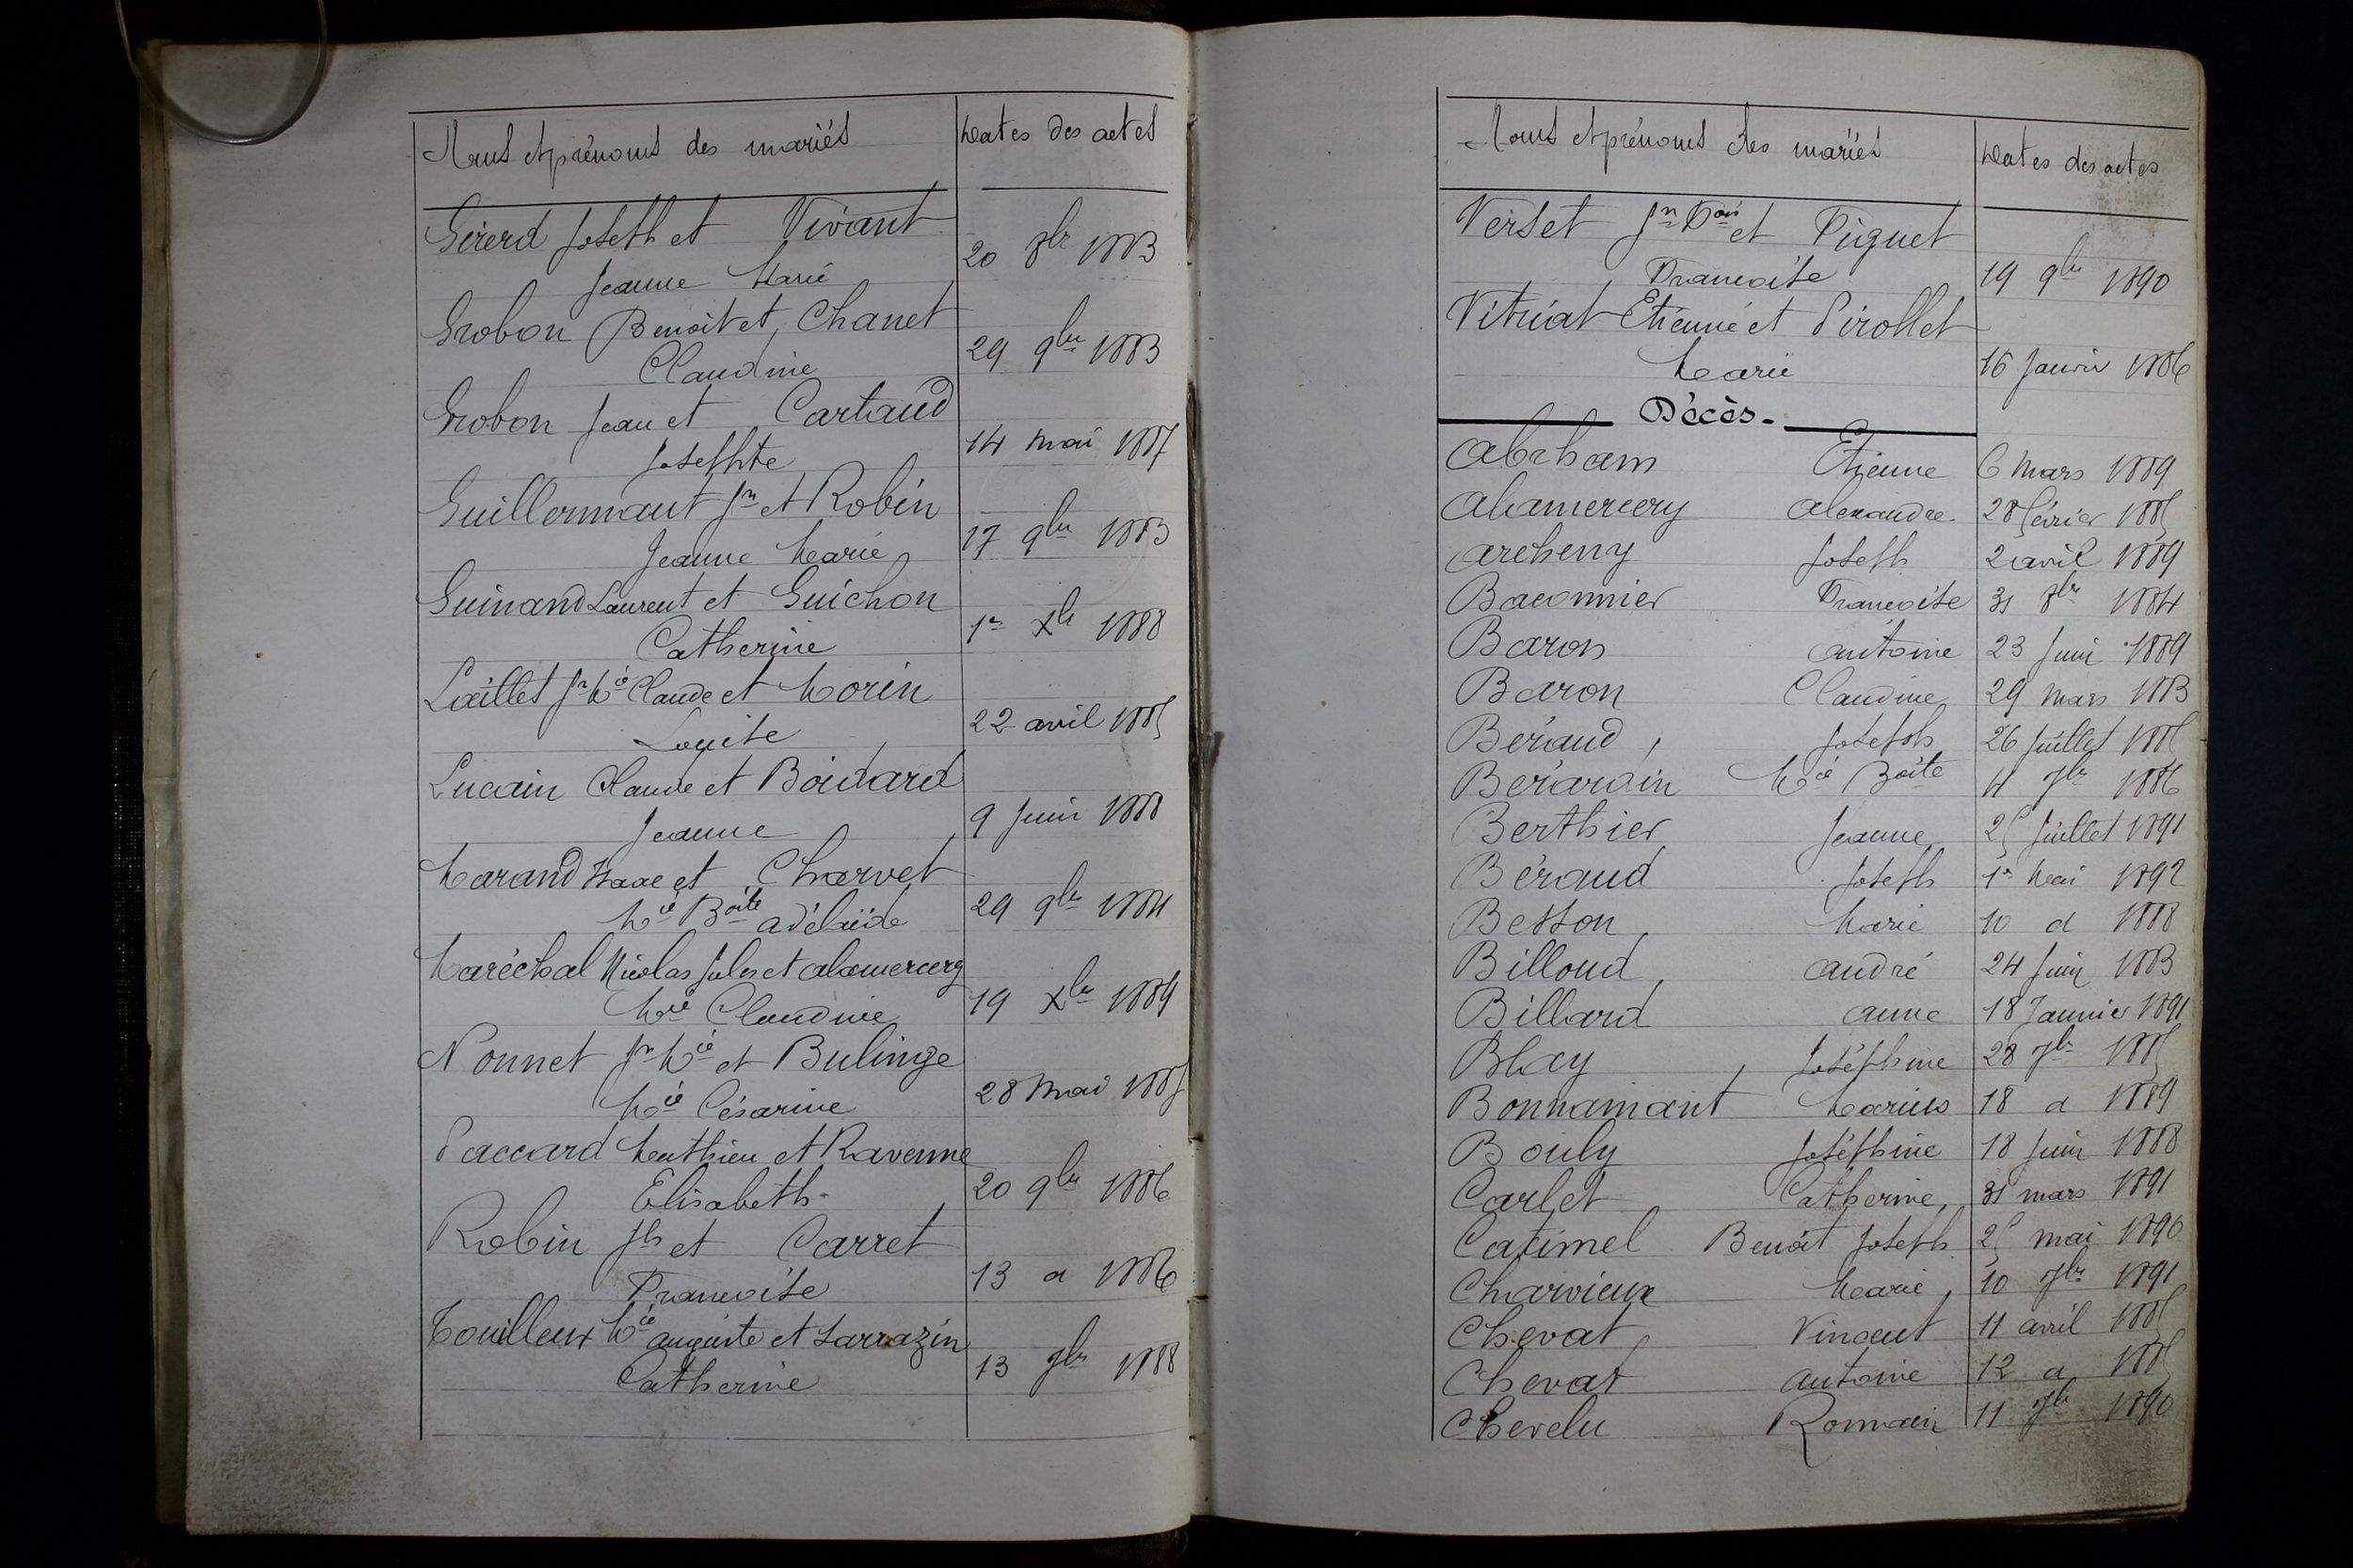 Noms et prénoms des mariés Dates des actes
Girerd Joseph et Vivant
Jeanne Marie 20 8br 1883
Grobon Benoit et Chanet
Claudine 29 9bre 1883
Grobon Jean et Cartaud
Josephte 14 mai 1887
Guillermaut Jn et Robin
Jeanne Marie 17 9bre 1883
Guinand Laurent et Guichon
Catherine 1er Xbre 1888
Liaillet Jn Mie Claude et Morin
Louise 22 avril 1885
Lucain Claude et Boidard
Jeanne 9 Juin 1888
Marand Isaac et Charvet
Mie Boite adélaïde 29 9bre 1884
Maréchal Nicolas Jules et alamercery
Mie Claudine 19 Xbre 1889
Nonnet Jn Mie et Bulinge
Mie Césarine 28 Mai 1885
Paccard Mathieu et Ravenne
Elisabeth 20 9bre 1886
Robin Jh et Carret
Francoise 13 d 1886
Touilleux Mie auguste et Sarrazin
Catherine 13 7br 1888
Noms et prénoms des mariés Dates des actes
Verset Jn Fois et Piguet
Francoise 19 9bre 1890
Vitriat Etienne et Pirollet
Marie 16 Janvier 1886
Décès.
Abrham Etienne 6 Mars 1889
Alamercery Alexandre 28 février 1885
archeny Joseph 2 avril 1889
Baconnier Francoise 31 8br 1884
Baron antoine 23 Juin 1889
Baron Claudine 29 Mars 1883
Beraud Joseph 26 Juillet 1885
Berardin Mie Boite 4 7br 1886
Berthier Jeanne 25 Juillet 1891
Beraud Joseph 1er Mai 1892
Besson Marie 10 d 1888
Billoud andré 24 Juin 1883
Billard anne 18 Janvier 1891
Blay Joséphine 28 7br 1885
Bonnamant Marius 18 d 1889
Bouly Joséphine 18 Juin 1888
Carlet Catherine 31 mars 1891
Catimel Benoit Joseph 25 mai 1890
Charvieux Marie 10 7br 1891
Chevat Vincent 11 avril 1885
Chevat Antoine 12 d 1885
Chevelu Romain 11 7br 1890